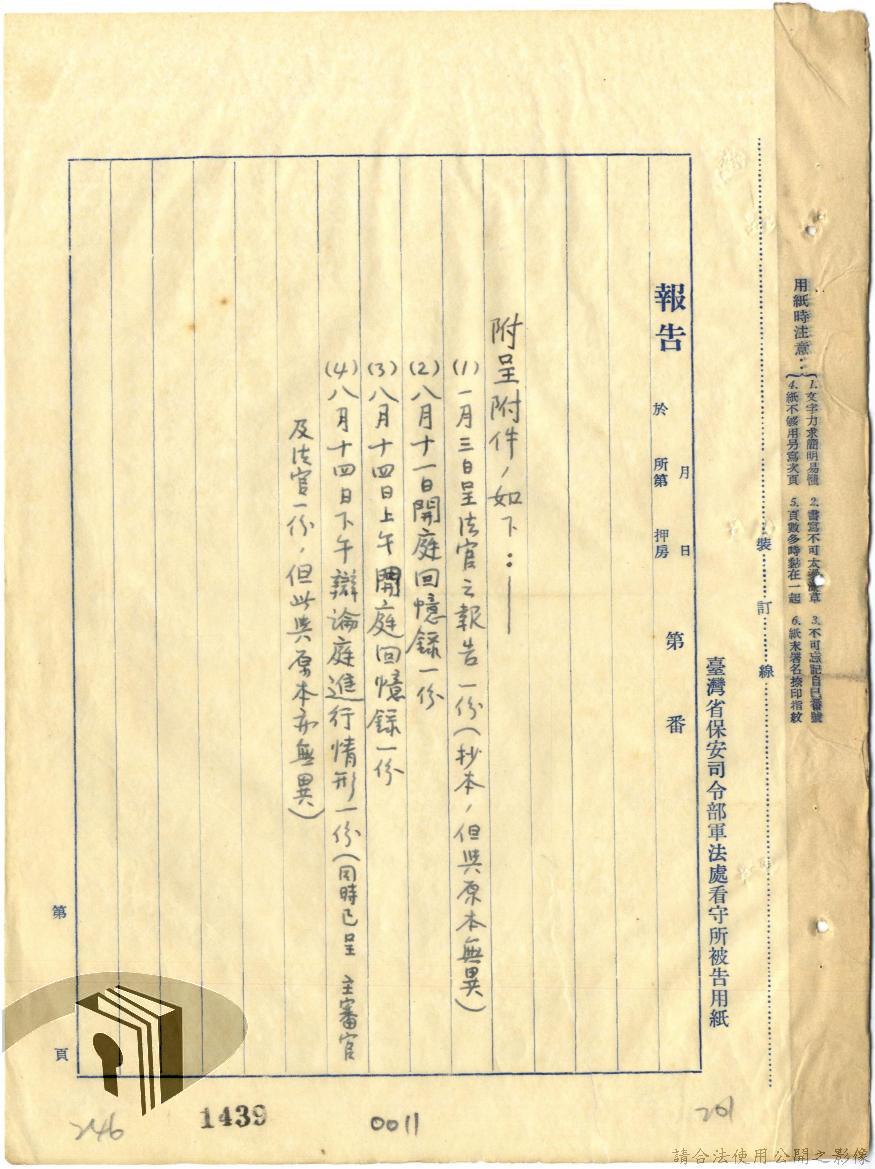 用紙時注意：
1.文字力求簡明易懂 2.書寫不可太潦草 3.不可忘記自己番號
4.紙不够用另寫次頁 5.頁數多時黏在一起 6.紙末署名捺印指紋
裝訂線
臺灣省保安司令部軍法處看守所被告用紙
報告 於 月 日 所第 押房 第 番
附呈附件，如下：——
(1)一月三日呈法官之報告一份(抄本，但與原本無異)
(2)八月十一日開庭回憶錄一份
(3)八月十四日上午開庭回憶錄一份
(4)八月十四日下午辯論庭進行情形一份(同時已呈 主審官
及法官一份，但此與原本亦無異)
第 頁
246
1439
0011
201
請合法使用公開之影像